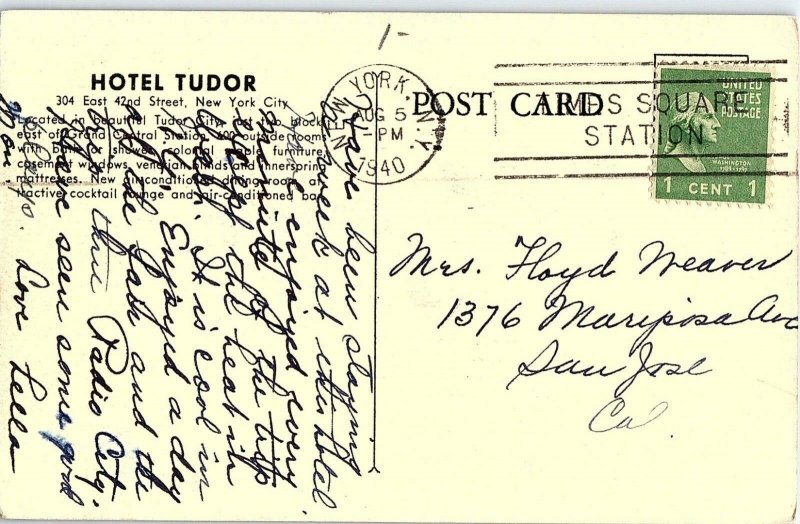 HOTEL TUDOR
304 East 42nd Street, New York City
Located in beautiful Tudor City, just two blocks
east of Grand Central Station. 600 outside rooms
with bath or shower, colonial maple furniture,
casement windows, venetian blinds and innerspring
mattresses. New air-conditioned dining room, at-
tractive cocktail lounge and air-conditioned bar.
POST CARD
NEW YORK, N.Y.
AUG 5
PM
1940
TIMES SQUARE
STATION
UNITED
STATES
POSTAGE
WASHINGTON
1 CENT 1
1-
Have been staying
a week at this hotel
and enjoyed every
minute of the trip
except the heat in
It is cool in
N.Y. Enjoyed a day
at the Fair and the
trip thru Radio City.
Have seen some good
Love Lella
Mrs. Floyd Weaver
1376 Mariposa Ave
San Jose
Cal.